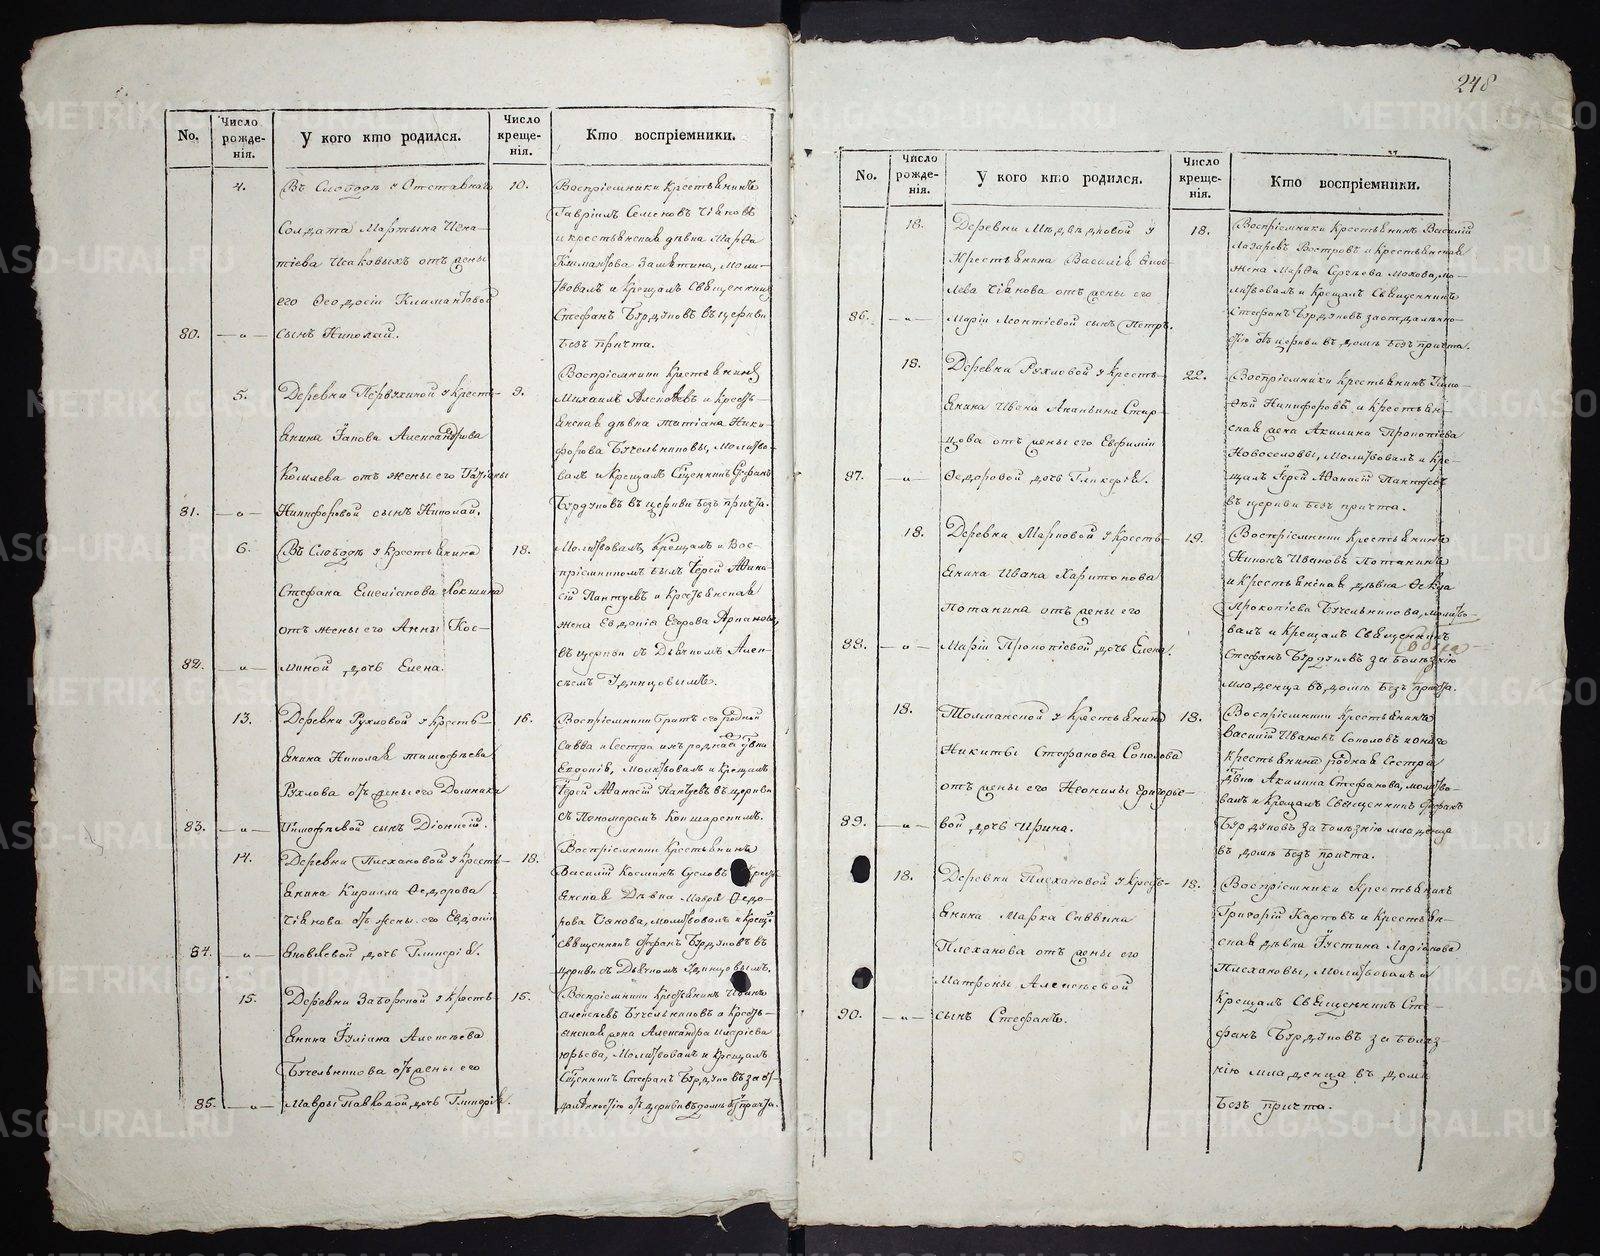 No.
Число рожде-нія.
У кого кто родился.
Число креще-нія.
Кто воспріемники.
4.
Въ Слободѣ у Отставнаго
Солдата Мартына Игна-
тіева Исаковыхъ отъ жены
его Ѳеодосіи
80.
сынъ Николай.
10.
Воспріемники Крестьянинъ
Гавріилъ Семеновъ
и крестьянская дѣвка Марѳа
Замятина, Моли-
твовалъ и Крещалъ Священникъ
Стефанъ Бурдуковъ въ церкви
безъ причта.
5.
Деревни Первухиной у Кресть-
янина Іакова Александрова
отъ жены его
81.
Никифоровой сынъ Николай.
9.
Воспріемники Крестьянинъ
Михаилъ и Кресть-
янская дѣвка Татіана Ники-
форова Бучельниковы, Молитво-
валъ и Крещалъ Сщенникъ Стефанъ
Бурдуковъ въ церкви безъ причта.
6.
Въ Слободѣ у Крестьянина
Стефана Емеліанова Кокшина
отъ жены его Анны Кос-
82.
миной дочь Елена.
18.
Молитвовалъ, Крещалъ и Вос-
пріемникомъ былъ Іерей Аѳана-
сій Пантуевъ и Крестьянская
жена Евдокія Егорова
въ церкви съ Дьячкомъ Алек-
сѣемъ Удинцовымъ.
13.
Деревни Рухловой у Кресть-
янина Николая Тимофѣева
Рухлова отъ жены его Домники
83.
Тимофѣевой сынъ Діонисій.
16.
Воспріемники братъ его родной
Савва и Сестра ихъ родная
Евдокія, Молитвовалъ и Крещалъ
Іерей Аѳанасій Пантуевъ въ церкви
съ Пономаремъ Кокшарскимъ.
14.
Деревни Плехановой у Кресть-
янина Кирилла Ѳедорова
отъ жены его Евдокіи
84.
Яковлевой дочь Гликерія.
18.
Воспріемники Крестьянинъ
Василій Косминъ Сусловъ и Кресть-
янская Дѣвка Мавра Ѳедо-
рова молитвовалъ и Крещ.
Священникъ Стефанъ Бурдуковъ въ
церкви съ Дьячкомъ Удинцовымъ.
15.
Деревни Заборской у Кресть-
янина Іуліана Алексѣева
Бучельникова отъ жены его
85.
Мавры Павловой дочь Гликерія.
15.
Воспріемники Крестьянинъ Иванъ
Алексѣевъ Бучельниковъ и Кресть-
янская жена Александра
Юрьева, Молитвовалъ и Крещалъ
Сщенникъ Стефанъ Бурдуковъ за от-
даленностію отъ церкви въ домѣ безъ причта.
248
No.
Число рожде-нія.
У кого кто родился.
Число креще-нія.
Кто воспріемники.
18.
Деревни Медвѣдковой у
Крестьянина Василія Яков-
лева отъ жены его
86.
Маріи Леонтіевой сынъ Петръ.
18.
Воспріемники Крестьянинъ Василій
Лазаревъ Востровъ и Крестьянская
жена Марѳа Сергѣева Мохова, мо-
литвовалъ и Крещалъ Священникъ
Стефанъ Бурдуковъ за отдаленно-
стію отъ церкви въ домѣ безъ причта.
18.
Деревни Рухловой у Кресть-
янина Ивана Ананьина Стар-
цова отъ жены его Евфиміи
87.
Ѳедоровой дочь Гликерія.
22.
Воспріемники Крестьянинъ Тимо-
фей Никифоровъ и Крестьян-
ская жена Акилина Прокопіева
Новоселовы, Молитвовалъ и Кре-
щалъ Іерей Аѳанасій Пантуевъ
въ церкви безъ причта.
18.
Деревни Марковой у Кресть-
янина Ивана Харитонова
Потанина отъ жены его
88.
Маріи Прокопіевой дочь Елена.
19.
Воспріемники Крестьянинъ
Никонъ Ивановъ Потанинъ
и Крестьянская дѣвка Ѳекла
Прокопіева Бучельникова, молитво-
валъ и Крещалъ Священникъ
Стефанъ Бурдуковъ за болѣзнію
младенца въ домѣ безъ причта.
18.
Толманской у Крестьянина
Никиты Стефанова Соколова
отъ жены его Неонилы Григорье-
89.
вой дочь Ирина.
18.
Воспріемники Крестьянинъ
Василій Ивановъ Соколовъ и онаго
Крестьянина родная Сестра
дѣвка Акилина Стефанова, молитво-
валъ и Крещалъ Священникъ Стефанъ
Бурдуковъ за болѣзнію младенца
въ домѣ безъ причта.
18.
Деревни Плехановой у Кресть-
янина Марка Саввина
Плеханова отъ жены его
Матроны Алексѣевой
90.
сынъ Стефанъ.
18.
Воспріемники Крестьянинъ
Григорій Карповъ и Крестьян-
ская дѣвка Іустина Ларіонова
Плехановы, Молитвовалъ и
Крещалъ Священникъ Сте-
фанъ Бурдуковъ за болѣз-
нію младенца въ домѣ
безъ причта.
METRIKI.GASO-URAL.RU